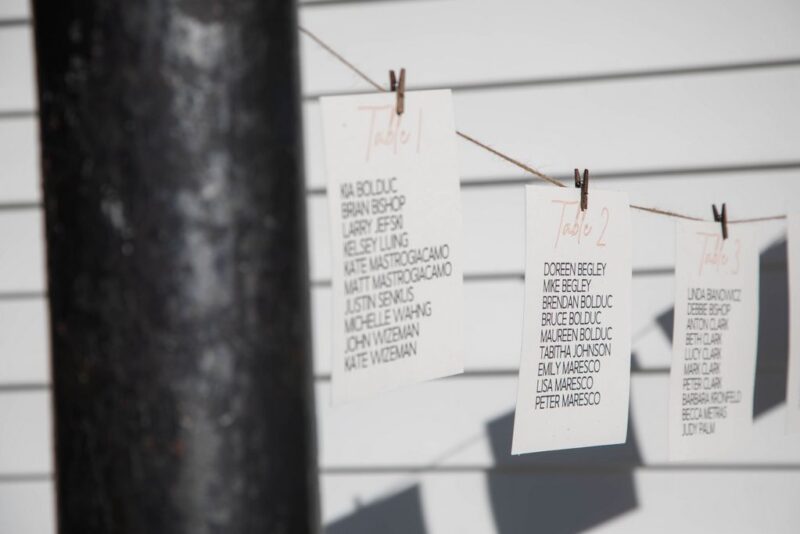 Table 1
KIA BOLDUC
BRIAN BISHOP
LARRY JEFSKI
KELSEY LUNG
KATE MASTROGIACAMO
MATT MASTROGIACAMO
JUSTIN SENKUS
MICHELLE WAHNG
JOHN WIZEMAN
KATE WIZEMAN
Table 2
DOREEN BEGLEY
MIKE BEGLEY
BRENDAN BOLDUC
BRUCE BOLDUC
MAUREEN BOLDUC
TABITHA JOHNSON
EMILY MARESCO
LISA MARESCO
PETER MARESCO
Table 3
LINDA BIANOWICZ
DEBBIE BISHOP
ANTON CLARK
BETH CLARK
LUCY CLARK
MARK CLARK
PETER CLARK
BARBARA KRONFELD
BECCA METRAS
JUDY PALM